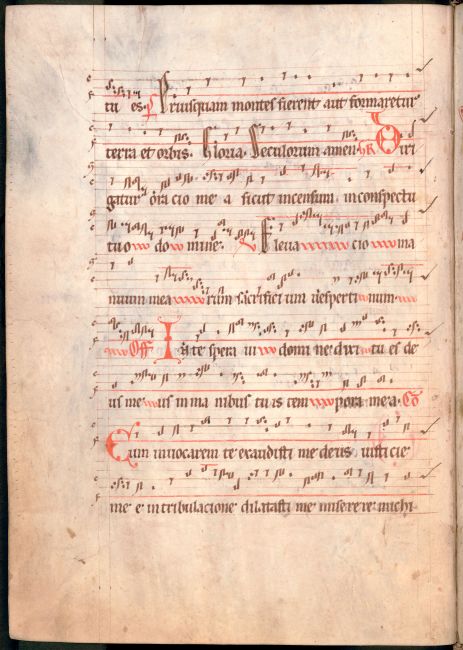 tu es. Priusquam montes fierent aut formaretur
terra et orbis. Gloria. Seculorum amen. GR Diri
gatur ora cio me a sicut incensum in conspectu
tuo do mine. V Eleva cio ma
nuum mea rum sacrifici um vesperti num.
Off In te spera vi domi ne dixi tu es de
us me us in ma nibus tu is tem pora me a. Co
Cum invocarem te exaudisti me deus iusticie
me e in tribulacione dilatasti me miserere michi